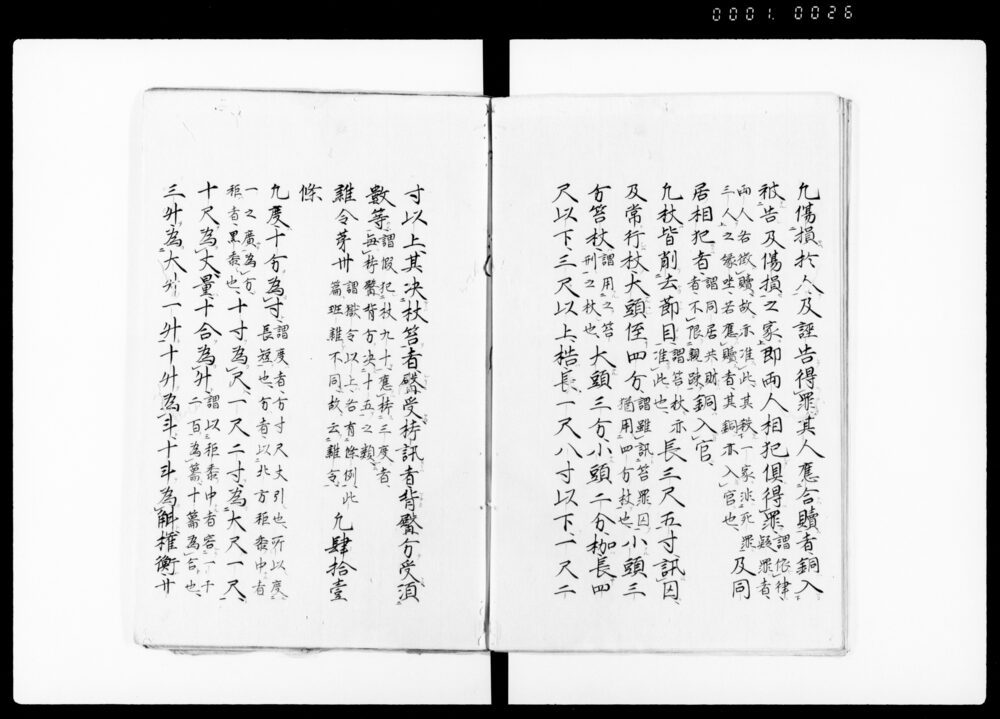 0001 0026
凢傷損於人及誣告得罪其人應合贖者銅入
被告及傷損之家即兩人相犯俱得罪謂依律疑罪者
兩人各徴贖故亦准此其秩一家非死罪
三人之縁坐若應贖者其銅亦入官也及同
居相犯者謂同居共財者不限親踈銅入官
凢杖皆削去節目謂笞杖亦准此也長三尺五寸訊囚
及常行杖大頭侄四分謂雖訊笞罪囚猶用四分杖也小頭三
分笞杖謂用之笞刑之杖也大頭三分小頭二分枷長四
尺以下三尺以上梏長一尺八寸以下一尺二
寸以上其决杖笞者臋受拷訊者背臋分受須
數等謂假犯杖九十應拷三度者毎拷臋背分决十五之類
雜令苐卅謂獄令以上各有條例此篇班雜不同故云雜令凢肆拾壹
條
凢度十分為寸謂度者分寸尺丈引也所以度長短也分者以北方秬黍中者
一之廣為分秬者黒黍也十寸為尺一尺二寸為大尺一尺
十尺為丈量十合為升謂以秬黍中者容一千二百為籥十籥為合也
三升為大升一升十升為斗十斗為斛權衡廿